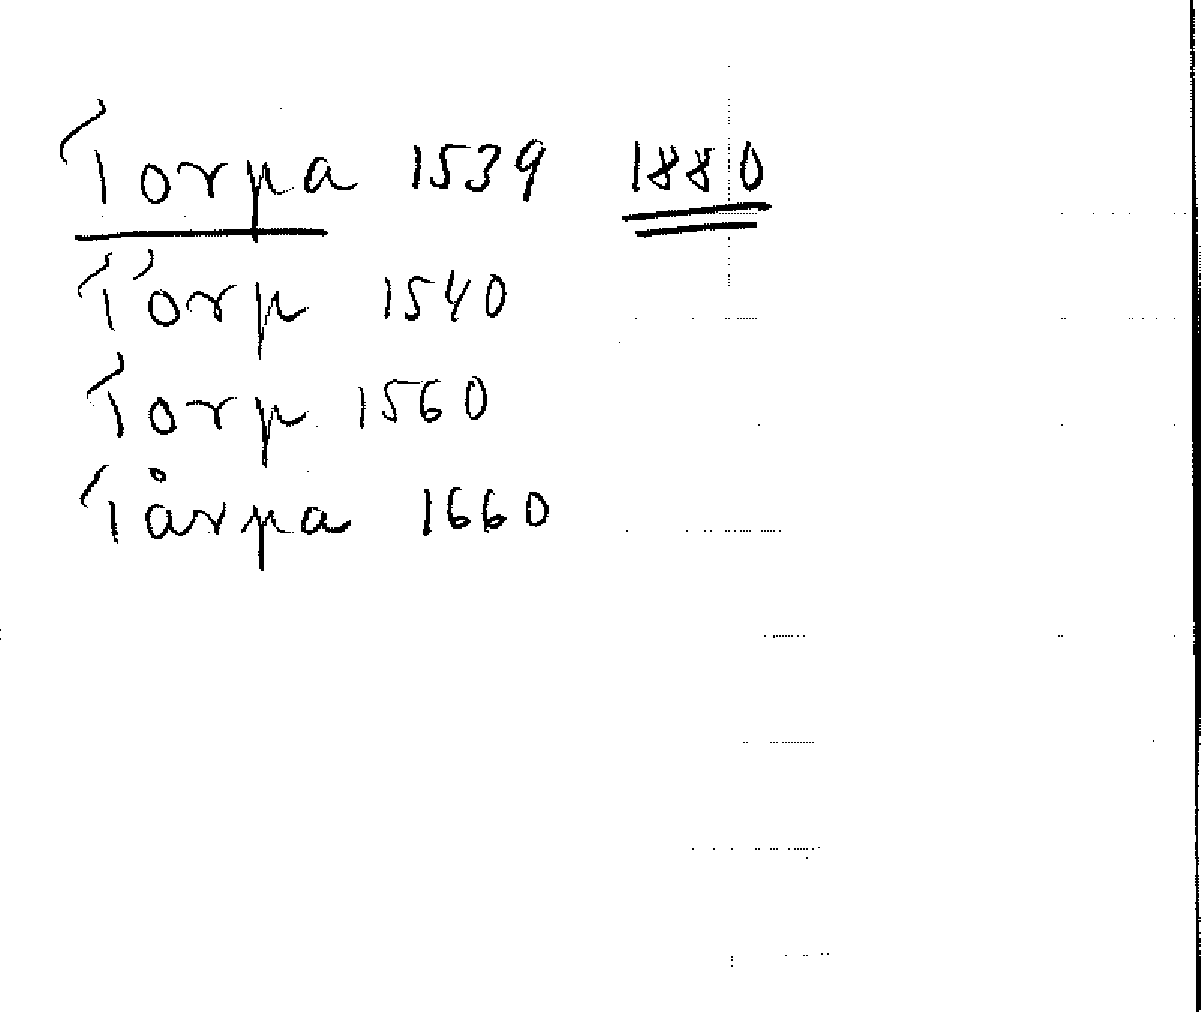 Torpa 1539 1880
Torp 1540
Torp 1560
Tårpa 1660